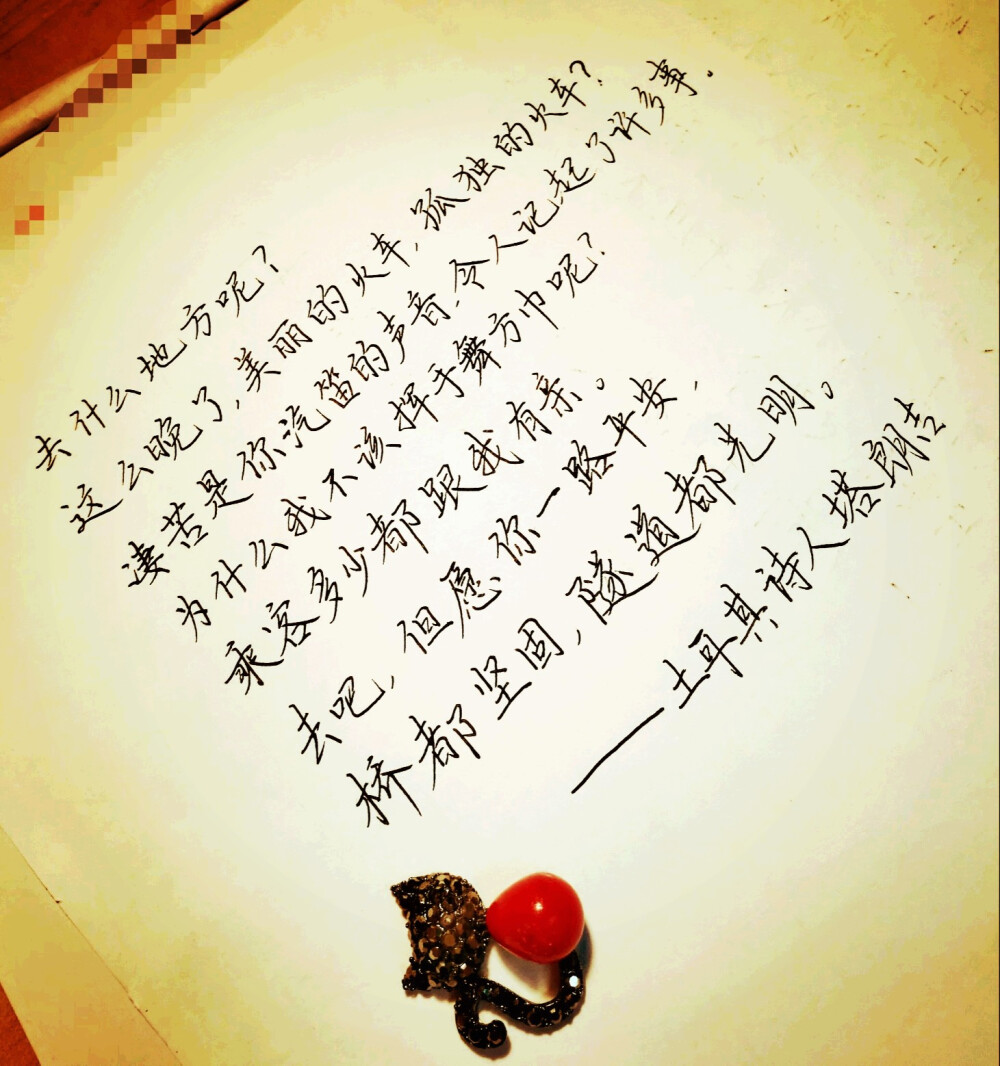 去什么地方呢？
这么晚了，美丽的火车，孤独的火车？
凄苦是你汽笛的声音，令人记起了许多事。
为什么我不该挥手舞方巾呢？
乘客多少都跟我有亲。
去吧，但愿你一路平安，
桥都坚固，隧道都光明。
——土耳其诗人塔朗吉